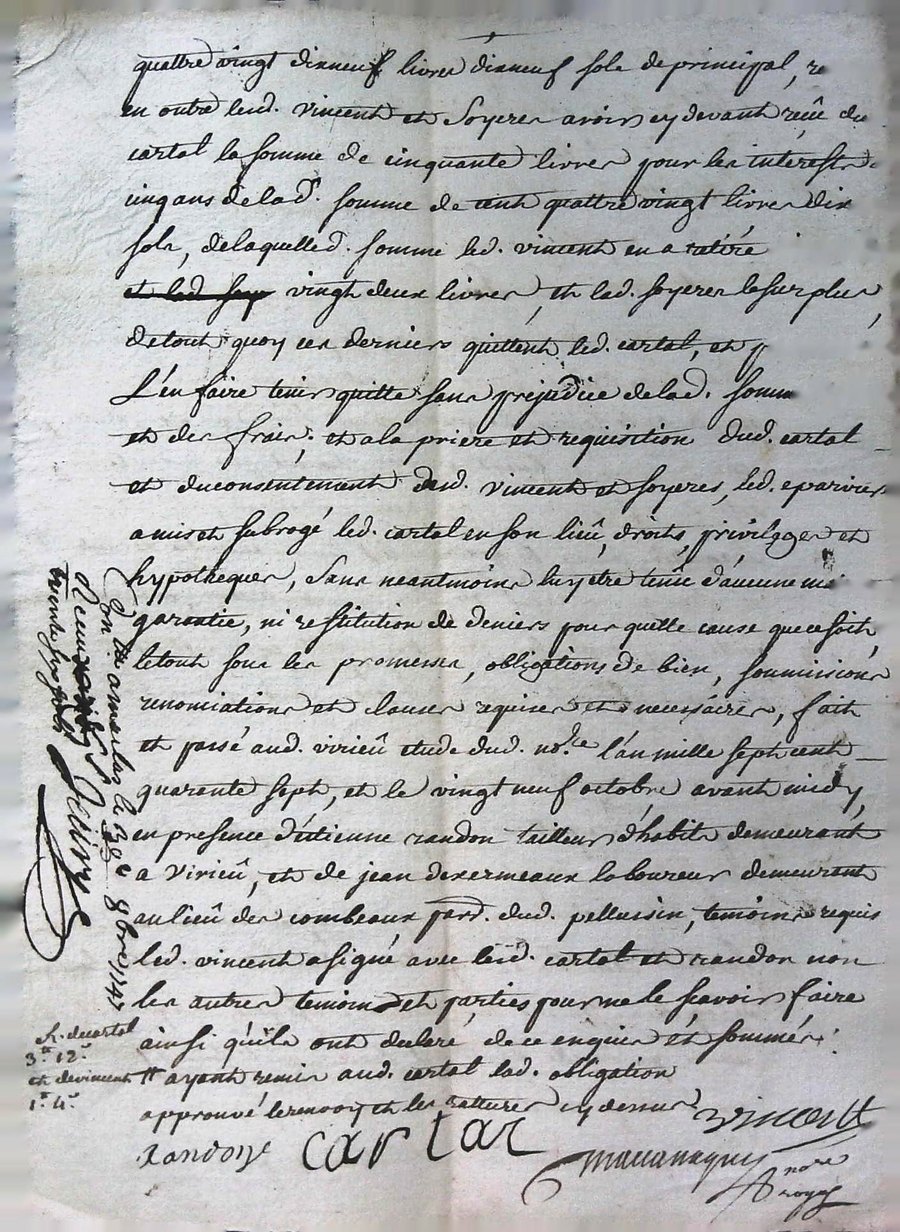 quattre vingt dixneuf livres dixneuf sols de principal, re
en outre lesd. vincent et Soyeres avoir cy devant reçû du
cartal la somme de cinquante livres pour les interests
cinq ans de lad. somme de cent quattre vingt livres dix
sols, de laquelle d. somme led. vincent en a retiré
et led. soy vingt deux livres, et led. soyeres le surplus,
de tout quoy ces derniers quittent led. cartal, et p
L'en faire tenir quitte sans prejudice de lad. somm
et des frais; et a la priere et requisition dud. cartal
et du consentement desd. vincent et soyeres, led. eparvier
a mis et subrogé led. cartal en son lieû, droits, privileges et
hypotheques, sans neantmoins luy etre tenû d'aucune
garantie, ni restitution de deniers pour quelle cause que ce soit,
le tout sous les promesses, obligations de bien, soumissions
renonciations et clauses requises et necessaires, fait
et passé aud. virieû etude dud. no.re l'an mille sept cent
quarente sept, et le vingt neuf octobre avant midy,
en presence d'etienne randon tailleur d'habits demeurant
a virieû, et de jean dexermeaux laboureur demeurant
au lieû des combeaux parr. dud. pellussin, temoins requis
led. vincent a signé avec lesd. cartal et randon non
les autres temoin et parties pour ne le scavoir faire
ainsi qu'ils ont declaré de ce enquis et sommés.
ayant remis aud. cartal lad. obligation
approuvé le renvoy et les ratures cy dessus
vincent
Randon cartal
nore
royal
Con.lé a
8bre 1747
Receu
trente six sols
R. de cartal
3.# 12.s
et de vincent
1.# 4.s